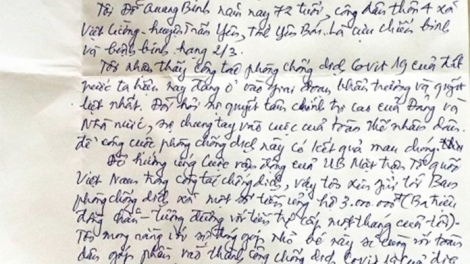 Tôi Đỗ Quang Bính năm nay 72 tuổi, công dân thôn 4 xã
Việt Cường huyện Trấn Yên, Tỉnh Yên Bái. Là cựu chiến binh
và bệnh binh hạng 2/3.
Tôi nhận thấy công tác phòng chống dịch Covid 19 của đất
nước ta hiện nay đang ở vào giai đoạn khẩn trương và quyết
liệt nhất. Đòi hỏi sự quyết tâm chính trị cao của Đảng và
Nhà nước, sự chung tay vào cuộc của toàn thể nhân dân
để công cuộc phòng chống dịch này có kết quả
hưởng ứng cuộc vận động của UB Mặt trận Tổ quốc
Việt Nam trong công tác chống dịch, vậy tôi xin gửi tới Ban
phòng chống dịch xã một số tiền ủng hộ 3.000.000đ (Ba triệu
đồng chẵn - tương đương với tiền trợ cấp một tháng của tôi)-
Tôi mong rằng với sự đóng góp nhỏ bé này sẽ cùng với toàn
dân góp phần vào thành công chống dịch Covid 19 của